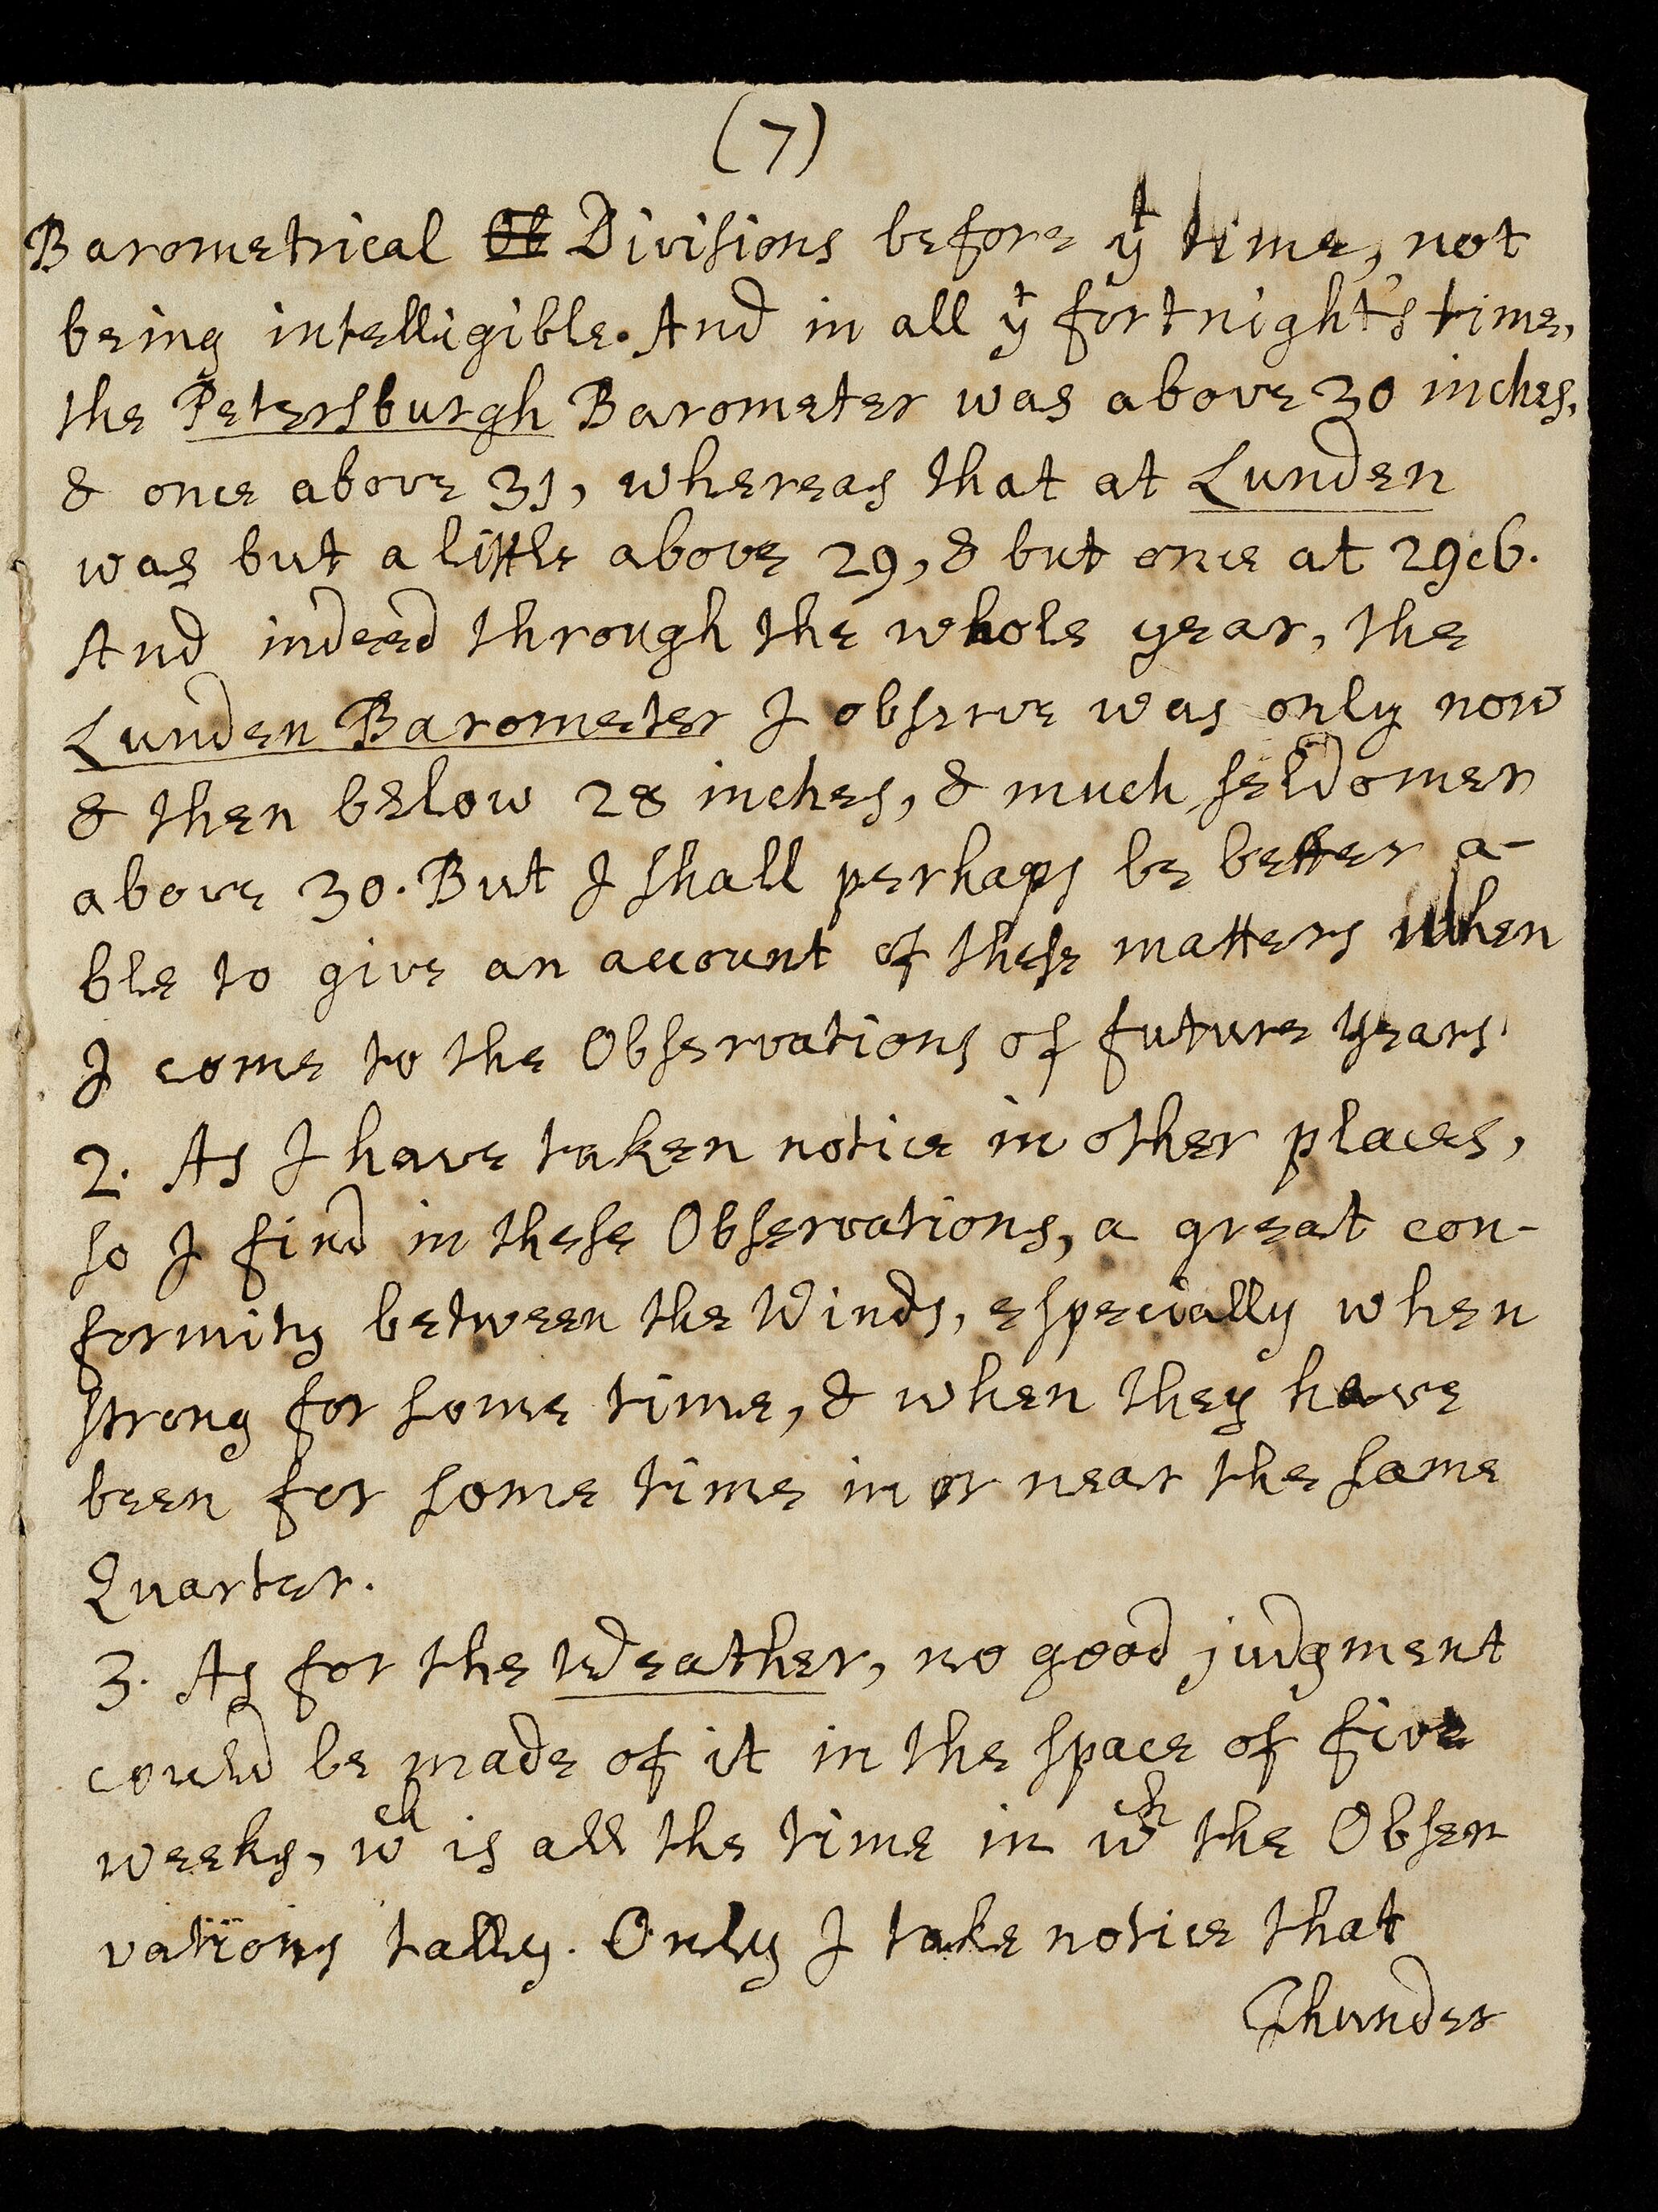 (7)
Barometrical Ob Divisions before yt time, not
being intelligible. And in all yt fortnight's time,
the Petersburgh Barometer was above 30 inches,
& once above 31, whereas that at Lunden
was but a little above 29, & but once at 29c6.
And indeed through the whole year, the
Lunden Barometer I observe was only now
& then below 28 inches, & much seldomer
above 30. But I shall perhaps be better a-
ble to give an account of these matters when
I come to the Observations of future years.
2. As I have taken notice in other places,
so I find in these Observations, a great con-
formity between the Winds, especially when
strong for some time, & when they have
been for some time in or near the same
Quarter.
3. As for the Weather, no good judgment
could be made of it in the space of five
weeks, wch is all the time in wch the Obser
vations tally. Only I take notice that
Thunder